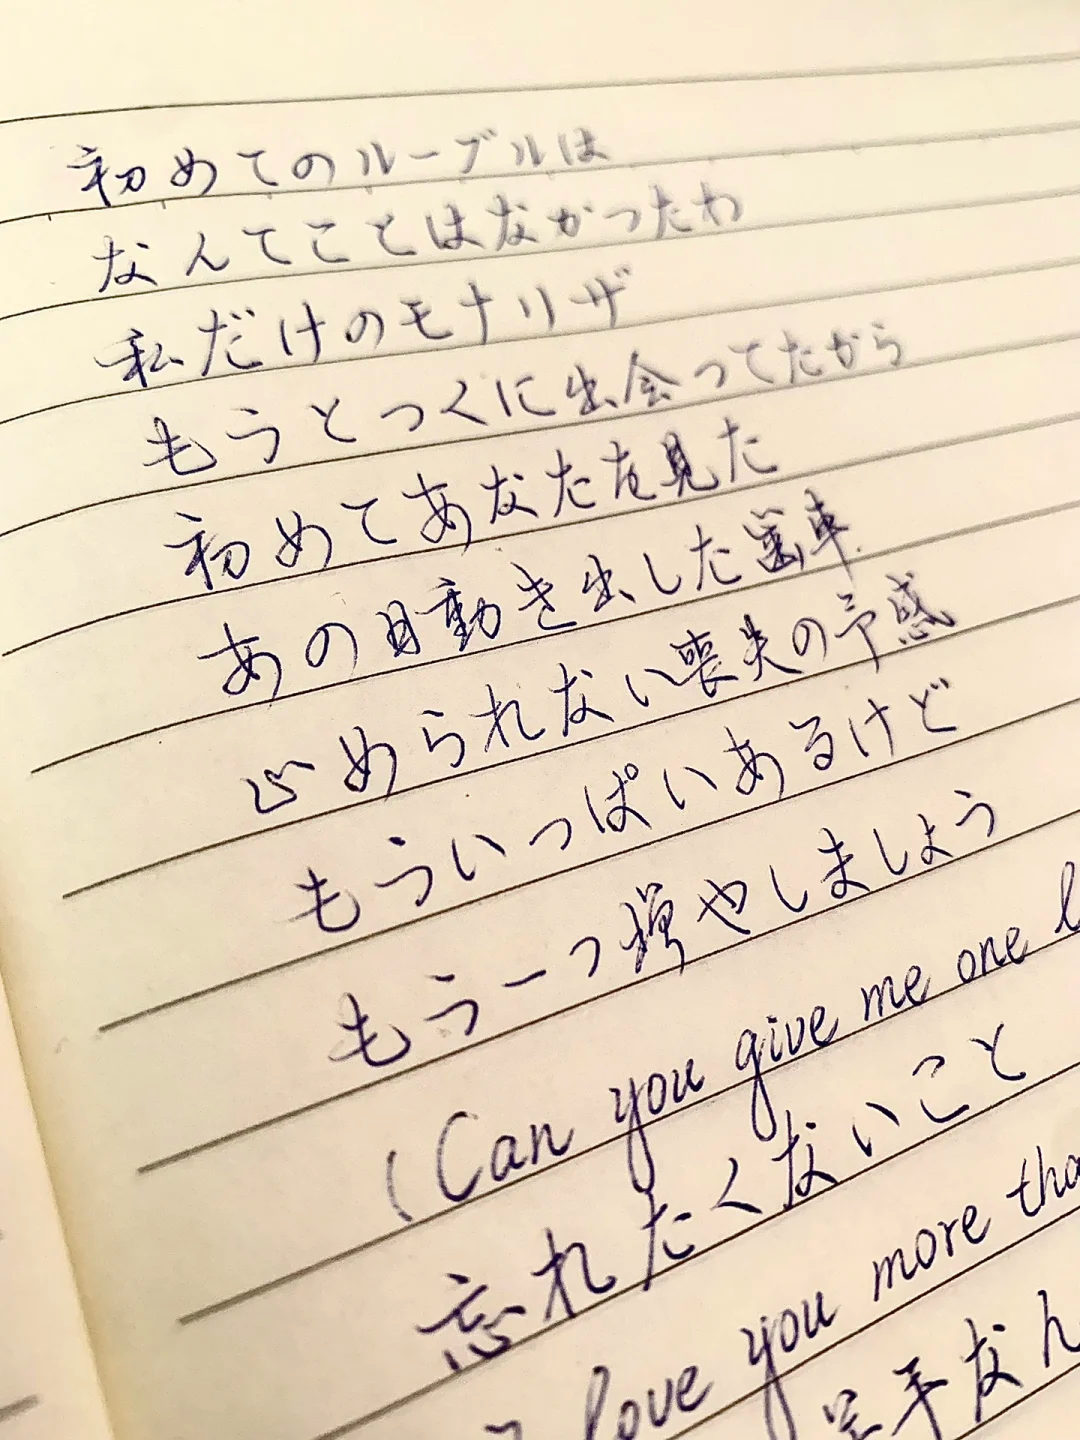 初めてのルーブルは
なんてことはなかったわ
私だけのモナリザ
もうとっくに出会ってたから
初めてあなたを見た
あの日動き出した歯車
止められない喪失の予感
もういっぱいあるけど
もう一つ増やしましょう
(Can you give me one
忘れたくないこと
love you more
手なん